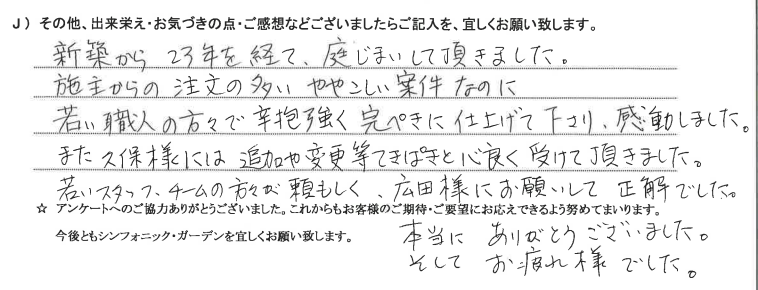 J) その他、出来栄え・お気づきの点・ご感想などございましたらご記入を、宜しくお願い致します。
新築から 23年を経て、庭じまいして頂きました。
施主からの 注文の多い ややこしい 案件 なのに
若い職人の方々で 辛抱強く 完ぺきに 仕上げて 下さり、感動しました。
また 久保様には 追加や変更等てきぱきと心良く 受けて頂きました。
若いスタッフ、チームの方々が 頼もしく、広田様にお願いして 正解でした。
☆ アンケートへのご協力ありがとうございました。これからもお客様のご期待・ご要望にお応えできるよう努めてまいります。
今後ともシンフォニック・ガーデンを宜しくお願い致します。
本当に ありがとうございました。
そして お疲れ様 でした。